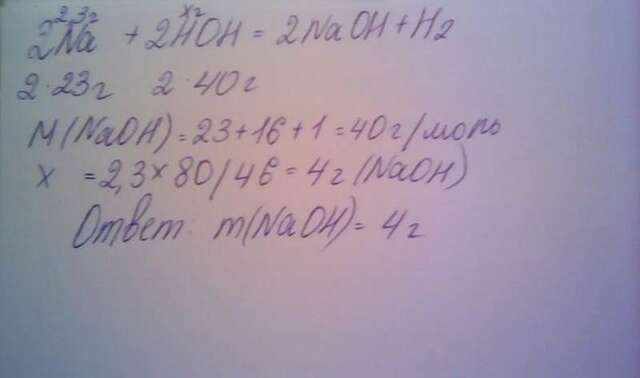 2,3г хг
2Na + 2HOH = 2NaOH + H2
2·23г 2·40г
M(NaOH) = 23+16+1 = 40г/моль
x = 2,3×80/46 = 4г (NaOH)
Ответ: m(NaOH) = 4г